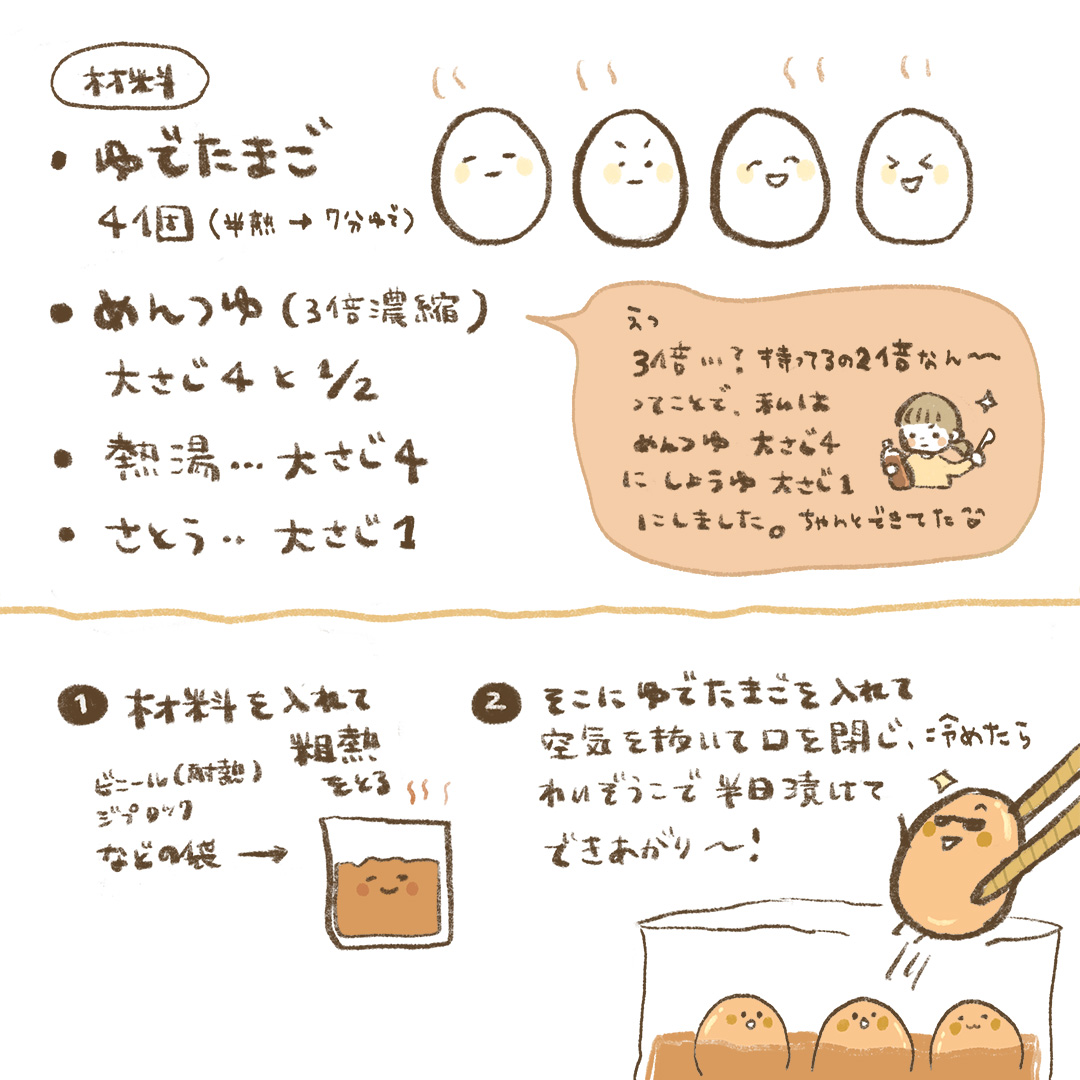 材料
・ゆでたまご
4個(半熟→7分ゆで)
・めんつゆ(3倍濃縮)
大さじ4と1/2
・熱湯…大さじ4
・さとう‥大さじ1
えっ
3倍…?持ってるの2倍なん〜
ってことで、私は
めんつゆ 大さじ4
に しょうゆ 大さじ1
にしました。ちゃんとできてた
1 材料を入れて
粗熱
をとる
ビニール(耐熱)
ジップロック
などの袋→
2 そこにゆでたまごを入れて
空気を抜いて口を閉じ、冷めたら
れいぞうこで半日漬けて
できあがり〜!